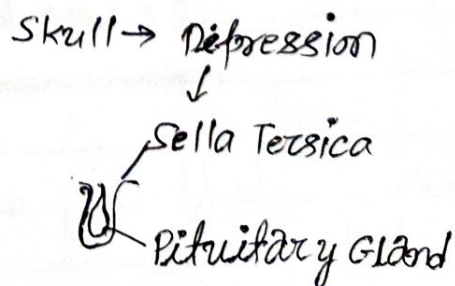 Skull → Depression
↓
Sella Tersica
Pituitary Gland